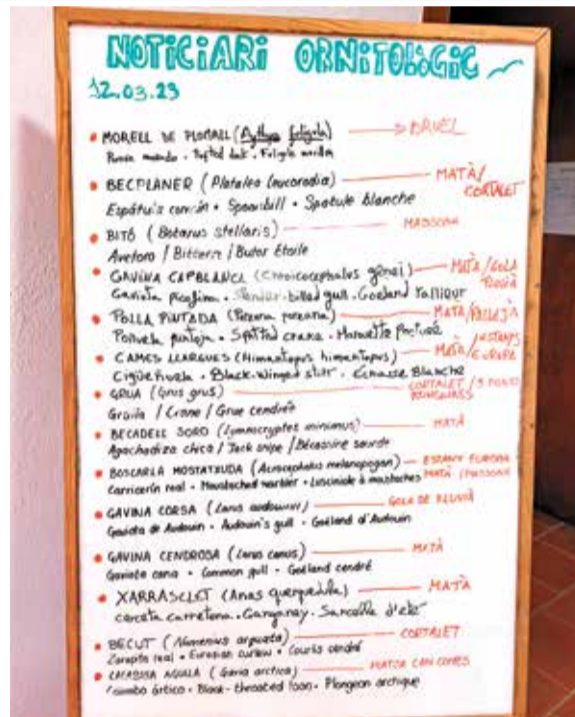 NOTICIARI ORNITOLÒGIC
12.03.23
MORELL DE PLOMALL (Aythya fuligula) BRUEL
Tufted duck
BECPLANER (Platalea leucorodia) MATÀ/
CORTALET
Espátula común • Spoonbill • Spatule blanche
BITÓ (Botaurus stellaris) MASSONA
Avetoro / Bittern / Butor Étoilé
GAVINA CAPBLANCA (Chroicocephalus genei) MATÀ/GOLA
Gaviota picofina • Slender-billed gull • Goeland railleur
POLLA PINTADA (Porzana porzana) MATÀ/
Polluela pintoja • Spotted crane • Marouette
CAMES LLARGUES (Himantopus himantopus) MATÀ/ESTANYS
EUROPA
Cigüeñuela • Black-winged stilt • Echasse Blanche
GRUA (Grus grus) CORTALET /
Grulla / Crane / Grue cendrée
BECADELL SORD (Lymnocryptes minimus) MATÀ
Agachadiza chica / Jack snipe / Bécassine sourde
BOSCARLA MOSTATXUDA (Acrocephalus melanopogon) ESTANY EUROPA
MATÀ / MASSONA
Carricerín real • Moustached warbler • Lusciniole à moustaches
GAVINA CORSA (Larus audouinii) GOLA DE FLUVIÀ
Gaviota de Audouin • Audouin's gull • Goéland d'Audouin
GAVINA CENDROSA (Larus canus) MATÀ
Gaviota cana • Common gull • Goéland cendré
XARRASCLET (Anas querquedula) MATÀ
cerceta carretona • Garganey • Sarcelle d'eté
BECUT (Numenius arquata) CORTALET
Zarapito real • European curlew • Courlis cendré
CALABRIA AGULLA (Gavia arctica) CAN COMES
Colimbo ártico • Black-throated loon • Plongeon arctique